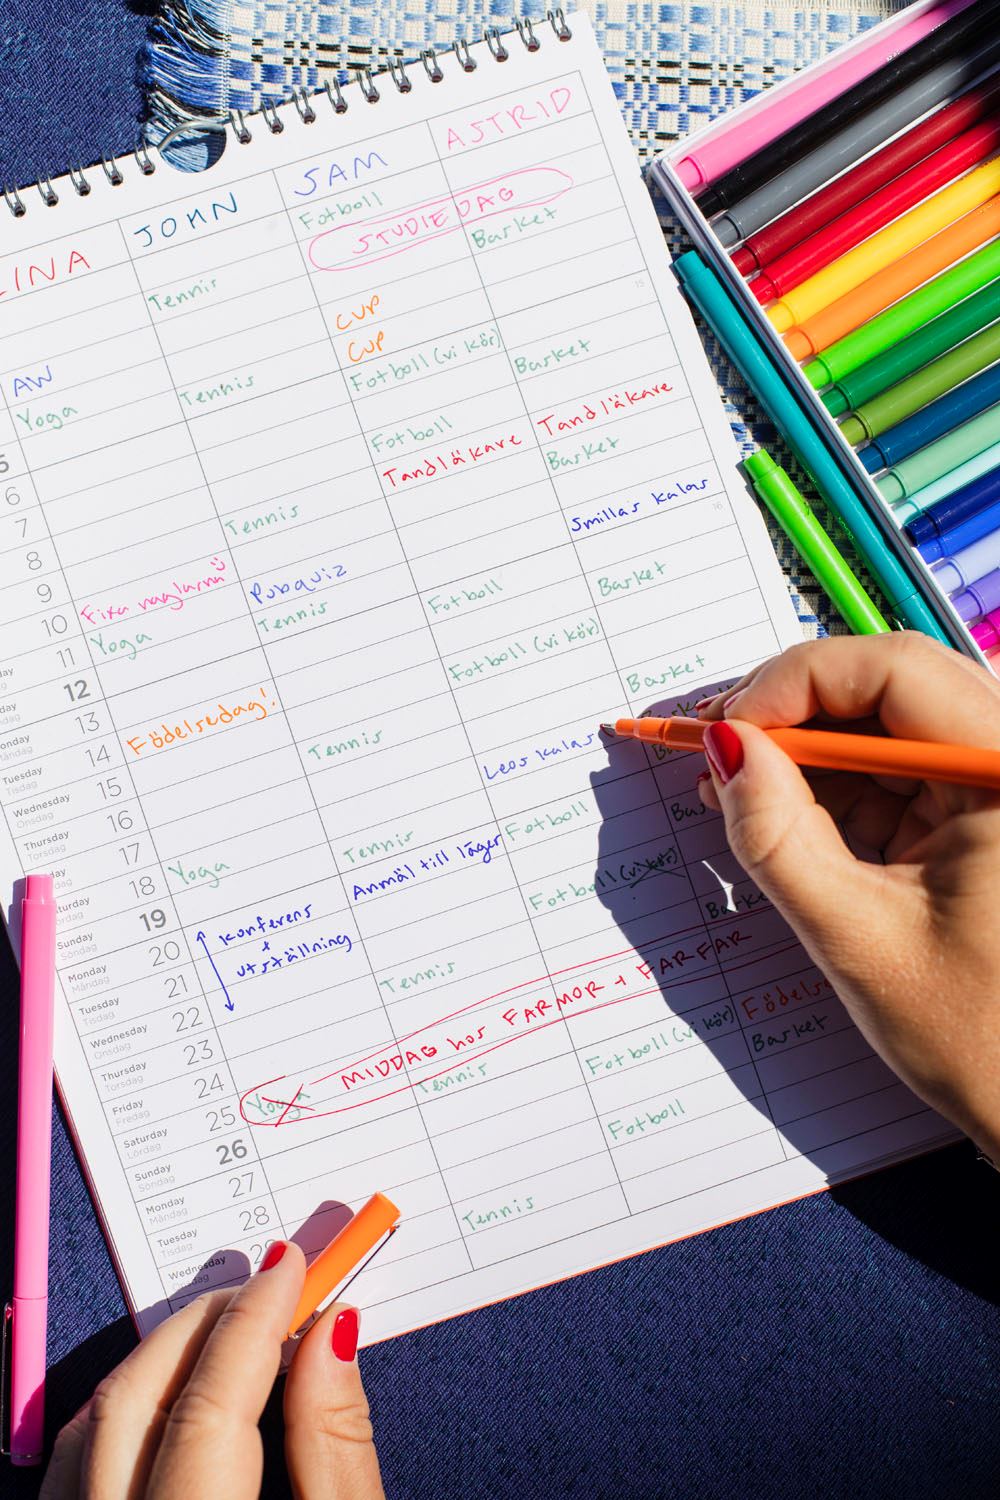 LINA JOHN SAM ASTRID
Fotboll
STUDIEDAG
Tennis Basket
CUP
AW CUP
Yoga Tennis Fotboll (vi kör) Basket
5
6 Fotboll Tandläkare
7 Tandläkare Basket
8 Tennis
9 Smillas kalas
10 Fixa naglarna Pubquiz
11 Yoga Tennis Fotboll Basket
12
13 Fotboll (vi kör)
14 Födelsedag! Basket
Tuesday Tisdag 15 Tennis
Wednesday Onsdag 16 Leos kalas
Thursday Torsdag 17
18 Yoga Tennis Fotboll
Sunday Söndag 19 Anmäl till läger
Monday Måndag 20 konferens + utställning Fotboll (vi kör)
Tuesday Tisdag 21
Wednesday Onsdag 22 Tennis
Thursday Torsdag 23
Friday Fredag 24 MIDDAG hos FARMOR + FARFAR
Saturday Lördag 25 Yoga Tennis Fotboll (vi kör) Basket
Sunday Söndag 26
Monday Måndag 27 Fotboll
Tuesday Tisdag 28
Wednesday Tennis
15
16